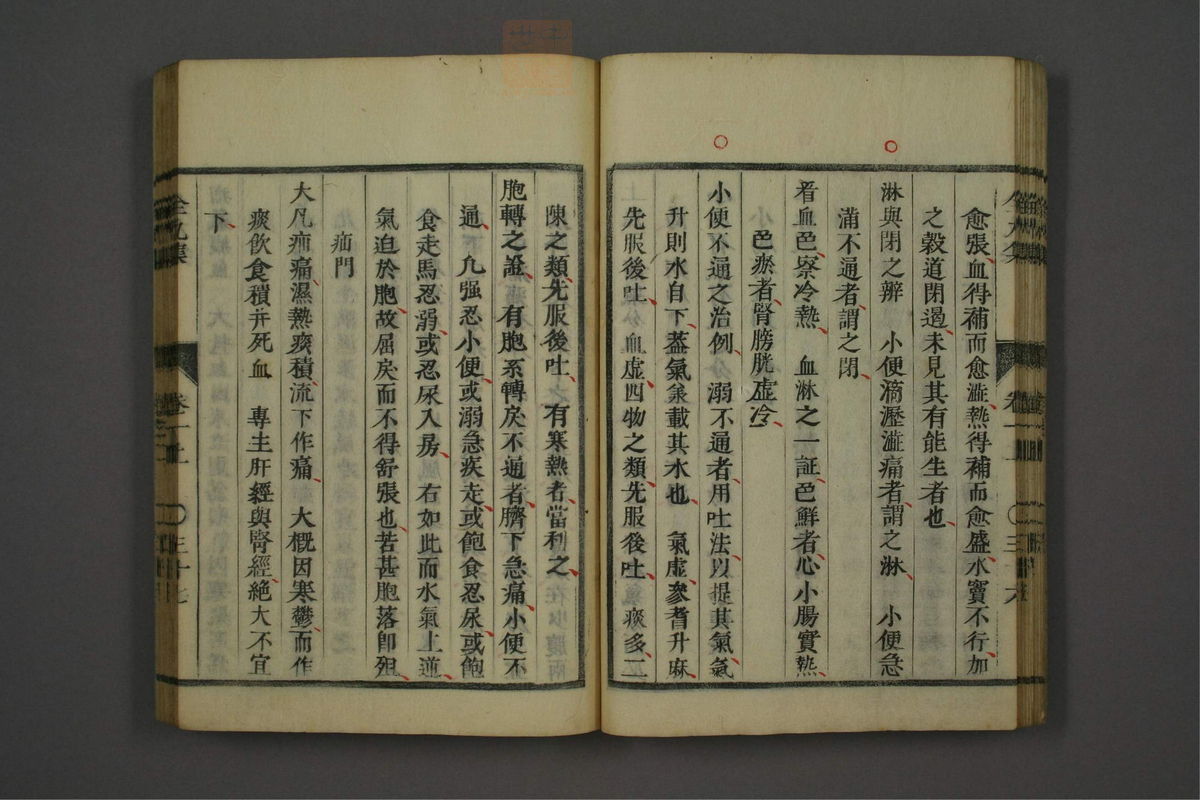 愈張血得補而愈澁熱得補而愈盛水竇不行加
之穀道閉遏未見其有能生者也
淋與閉之辨　小便滴瀝澁痛者謂之淋　小便急
滿不通者謂之閉
看血色寮冷熱　血淋之一証色鮮者心小腸實熱
色瘀者腎膀胱虛冷
小便不通之治例　溺不通者用吐法以提其氣氣
升則水自下蓋氣羕載其水也　氣虛參耆升麻
先服後吐　血虛四物之類先服後吐　痰多二
陳之類先服後吐　有寒熱者當利之
胞轉之證　有胞系轉戾不通者臍下急痛小便不
通　凡强忍小便或溺急疾走或飽食忍尿或飽
食走馬忍溺或忍尿入房　右如此而水氣上逆
氣迫於胞故屈戾而不得舒張也若甚胞落卽殂
疝門
大凡疝痛濕熱痰積流下作痛　大概因寒鬱而作
痰飲食積并死血　專主肝經與腎經絶大不宜
下
全九集
卷一上
〇三十七